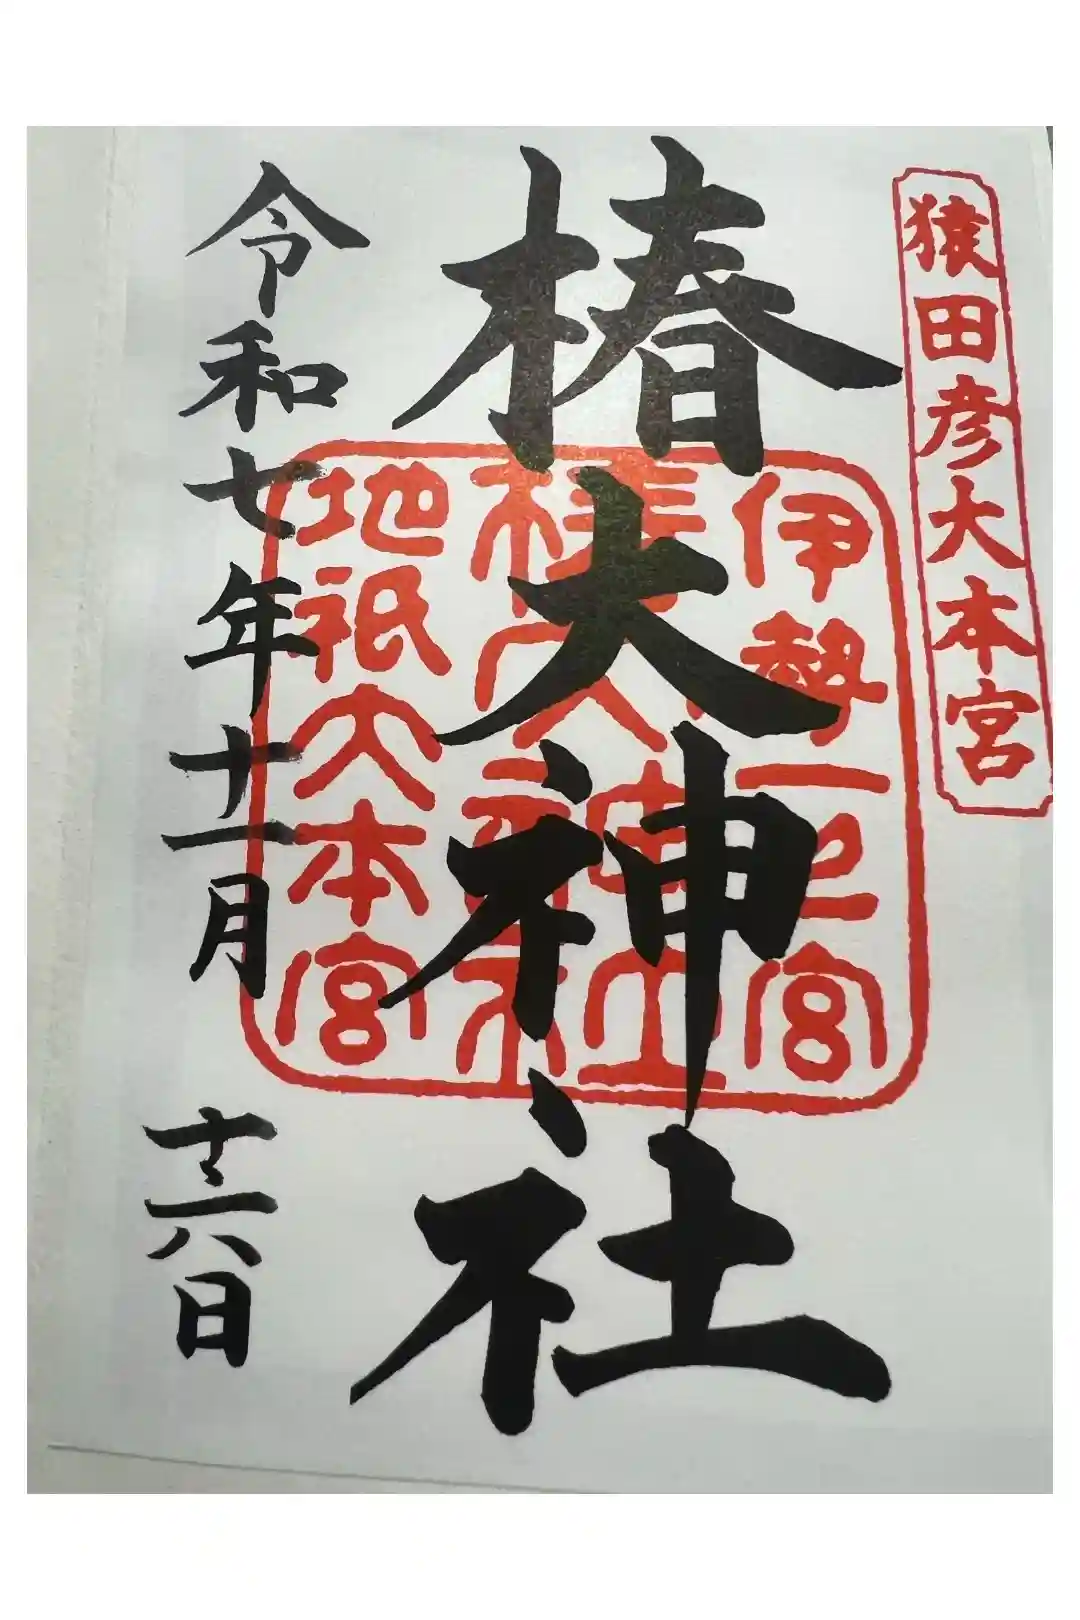 猿田彦大本宮
椿大神社
伊勢一之宮
椿大神社
地祇大本宮
令和七年十一月
日